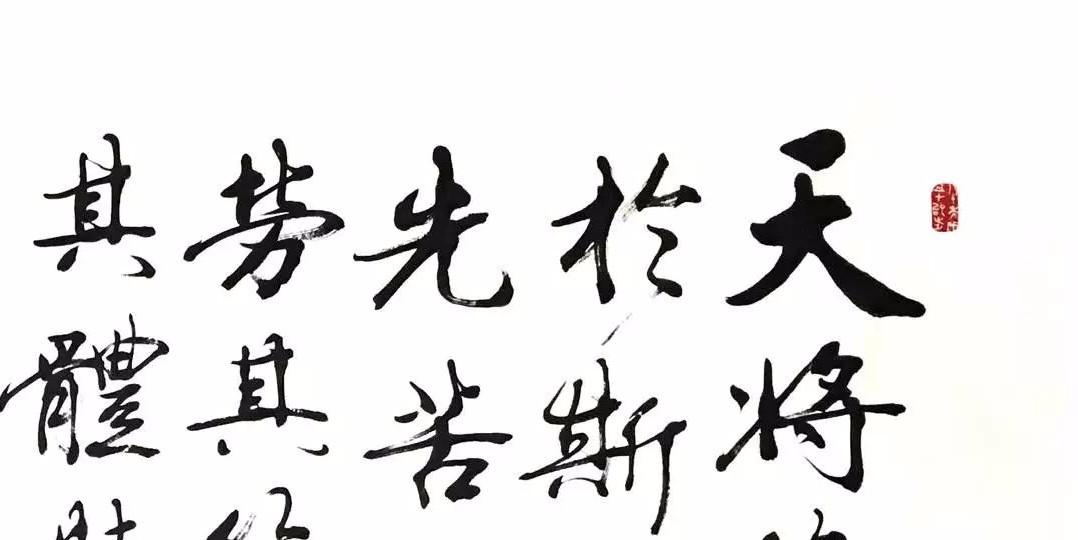 天將
於斯
先苦
勞其
其體